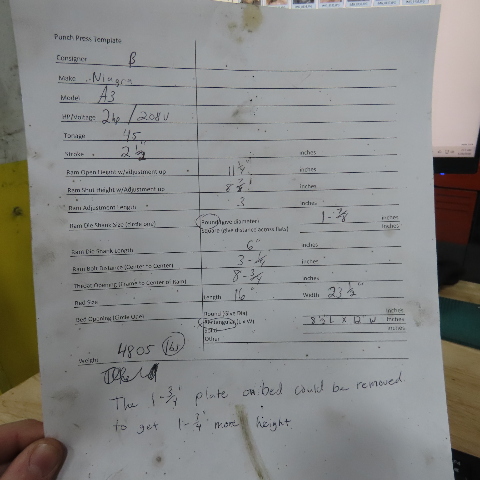 Punch Press Template
Consigner B
Make Niagra
Model A3
HP/Voltage 2hp / 208V
Tonage 45
Stroke 2 1/2" inches
Ram Open Height w/Adjustment up 11 1/4" inches
Ram Shut Height w/Adjustment up inches
Ram Adjustment Length 3 inches
Ram Die Shank Size (Circle one) Round(give diameter) 1-7/8 inches
Square (give distance across flats) inches
Ram Die Shank Length 6" inches
Ram Bolt Distance (Center to Center) 3-1/4 inches
Throat Opening (Frame to Center of Ram) 8-3/4 inches
Bed Size Length 16" Width 23 1/2"
Bed Opening (Circle One) Round (Give Dia) inches
Rectangular(L x W) inches
inches
Other
Weight 4805 lbs
The 1-3/4" plate on bed could be removed
to get 1-3/4" more height